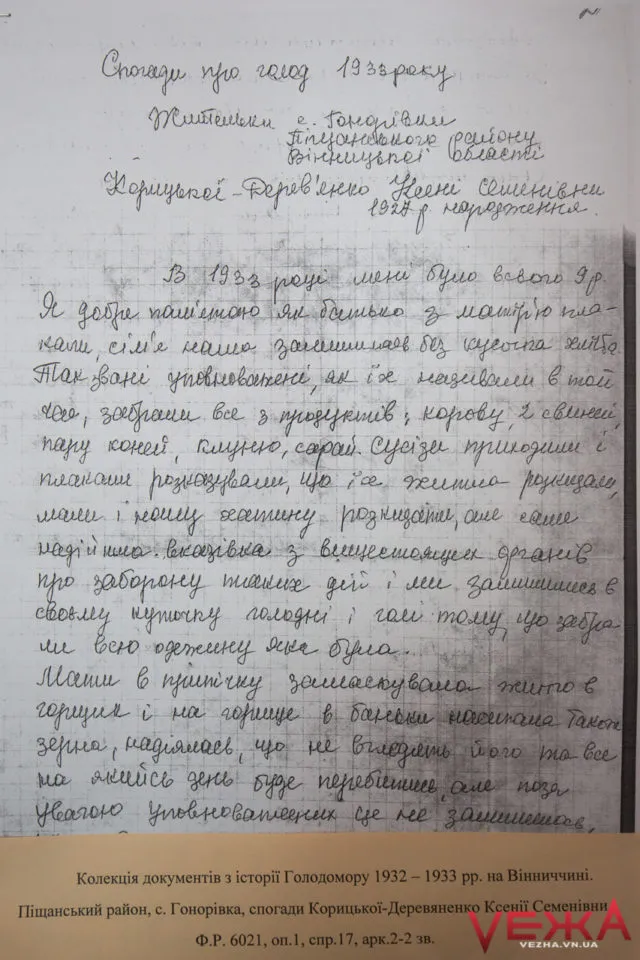 Спогади про голод 1933 року
Жительки с. Гонорівки
Піщанського району
Вінницької області
Корицької-Дерев'янко Ксені Семенівни
1927 р. народження.
В 1933 році мені було всього 9 р.
Я добре пам'ятаю як батько з матір'ю пла-
кали, сім'я наша залишилась без кусочка хліба.
Так звані уповноважені, як їх називали в той
час, забрали все з продуктів, корову, 2 свиней,
пару коней, клуню, сарай. Сусіди приходили і
плакали розказували, що їх житла розкидали,
мали і нашу хатину розкидати, але саме
надійшла вказівка з вищестоящих органів
про заборону таких дій і ми залишились в
своєму куточку голодні і голі тому, що забра-
ли всю одежину яка була...
Мати в припічку замаскувала жито в
горщик і на горище в баньки насипала також
зерна, надіялась, що не вгледять його та все
на якийсь день буде перебітись, але поза
увагою уповноважених це не залишилось,
Колекція документів з історії Голодомору 1932 – 1933 рр. на Вінниччині.
Піщанський район, с. Гонорівка, спогади Корицької-Деревяненко Ксенії Семенівни
Ф.Р. 6021, оп.1, спр.17, арк.2-2 зв.
VЕЖА
VEZHA.VN.UA